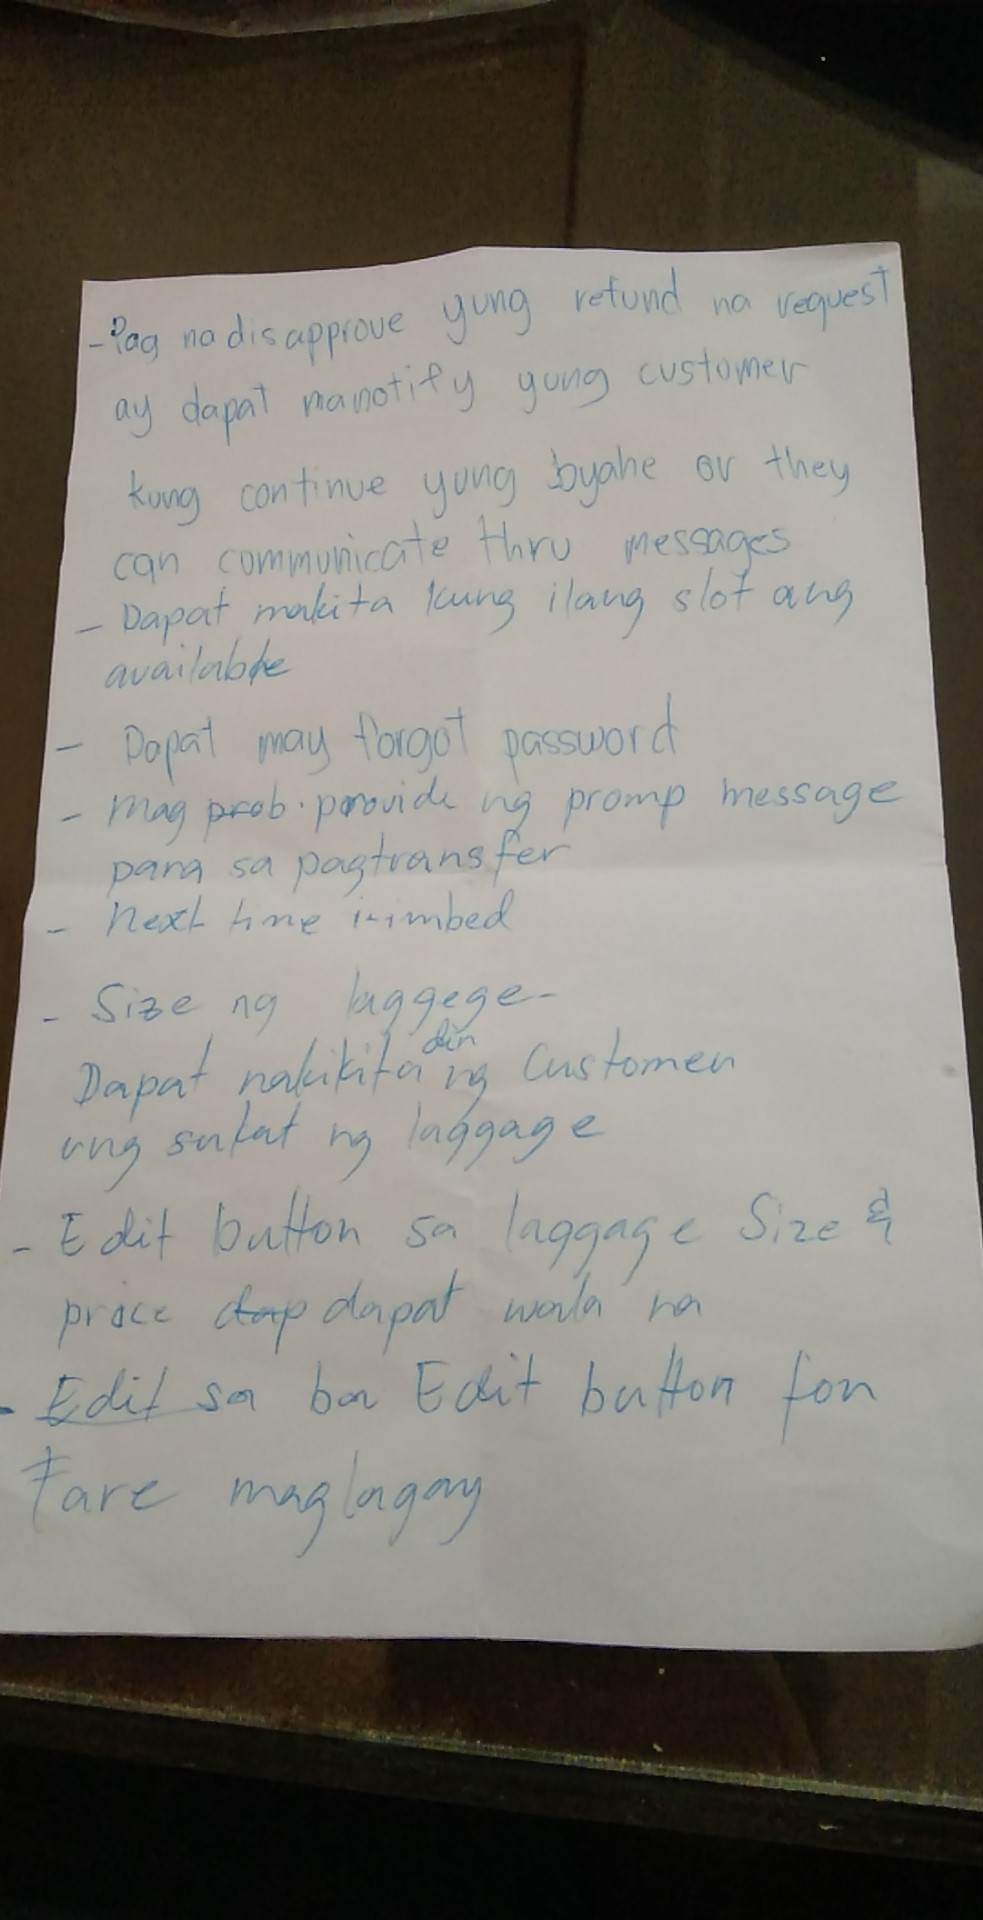 - Pag nadisapprove yung refund na request
ay dapat manotify yung customer
kung continue yung byahe or they
can communicate thru messages
- Dapat makita kung ilang slot ang
available
- Dapat may forgot password
- Mag prob. provide ng promp message
para sa pagtransfer
- Next time i-imbed
- Size ng laggege-
Dapat nakikita din ng Customer
ung sukat ng laggage
- Edit button sa laggage Size &
price dap dapat wala na
- Edit sa ba Edit button for
Fare maglagay